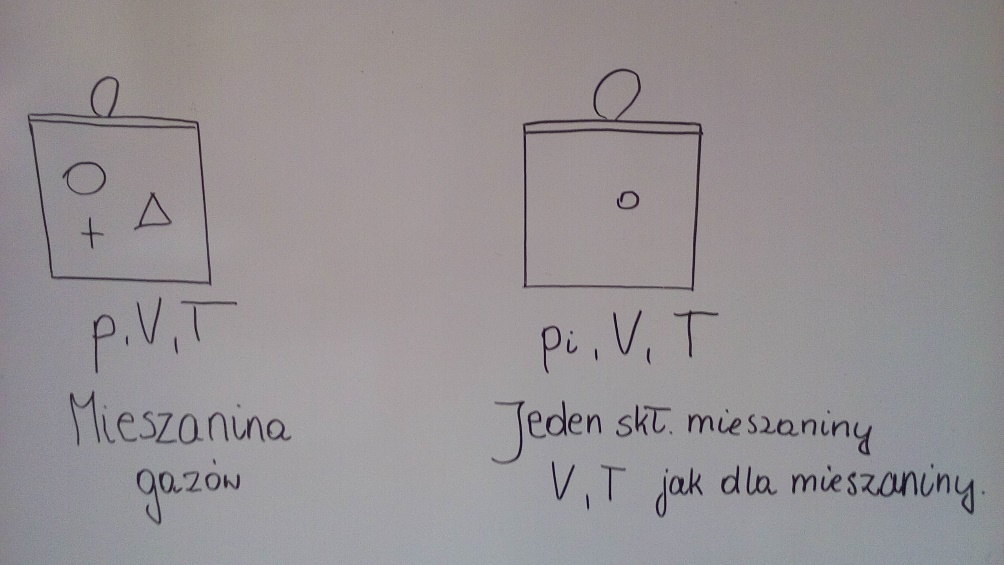 p, V, T
Mieszanina
gazów
pi, V, T
Jeden skł. mieszaniny
V, T jak dla mieszaniny.